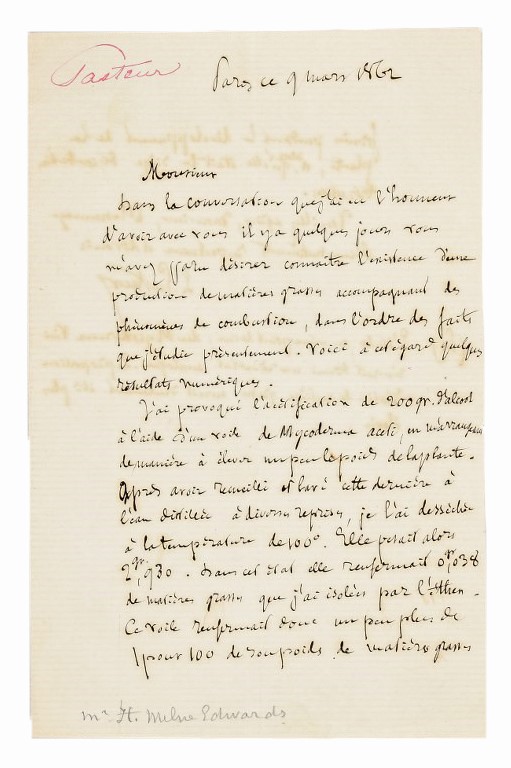 Pasteur
Paris ce 9 mars 1862
Monsieur
Dans la conversation que j'ai eu l'honneur
d'avoir avec vous il y a quelques jours vous
m'avez paru désirer connaître l'existence d'une
production de matières grasses accompagnant des
phénomènes de combustion, dans l'ordre des faits
que j'étudie présentement. Voici à cet égard quelques
résultats numériques.
J'ai provoqué l'acétification de 200 gr. d'alcool
à l'aide d'un voile de Mycoderma aceti, en m'arrangeant
de manière à élever un peu le poids de la plante.
Après avoir recueilli et lavé cette dernière à
l'eau distillée à diverses reprises, je l'ai desséchée
à la température de 100°. Elle pesait alors
2gr,930. Dans cet état elle renfermait 0gr,038
de matières grasses que j'ai isolées par l'éther.
Ce voile renfermait donc un peu plus de
1 pour 100 de son poids de matières grasses
Mr. H. Milne Edwards